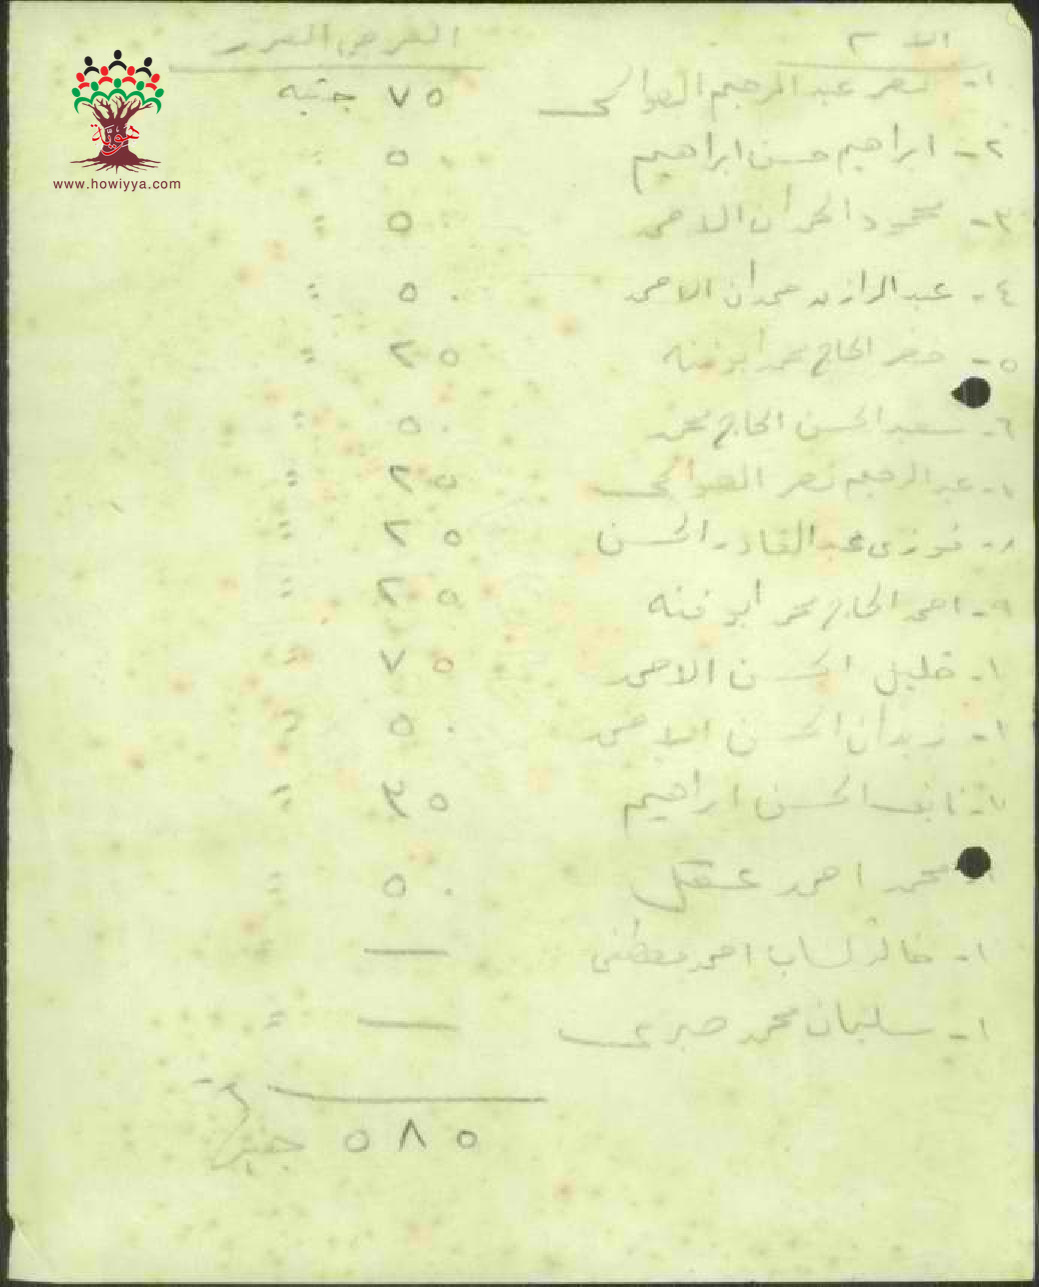 الاسم القرض المقرر
١- نصر عبد الرحيم الصوالحي ٧٥ جنيه
٢- ابراهيم حسن ابراهيم ٥٠ "
٣- محمود الحمدان الاحمد ٥٠ "
٤- عبد الرازق حمدان الاحمد ٥٠ "
٥- خضر الحاج محمد ابو فنه ٢٥ "
٦- سعيد الحسن الحاج محمد ٥٠ "
٧- عبد الرحيم نصر الصوالحي ٢٥ "
٨- فوزي عبد القادر الحسن ٢٥ "
٩- احمد الحاج محمد ابو فنه ٢٥ "
١- خليل الحسن الاحمد ٧٥ "
١- زيدان الحسن الاحمد ٥٠ "
١- نايف الحسن ابراهيم ٣٥ "
محمد احمد عقل ٥٠ "
١- خالد احمد مصطفى —
١- سليمان محمد صبري — "
٥٨٥ جنيه
هوية
www.howiyya.com